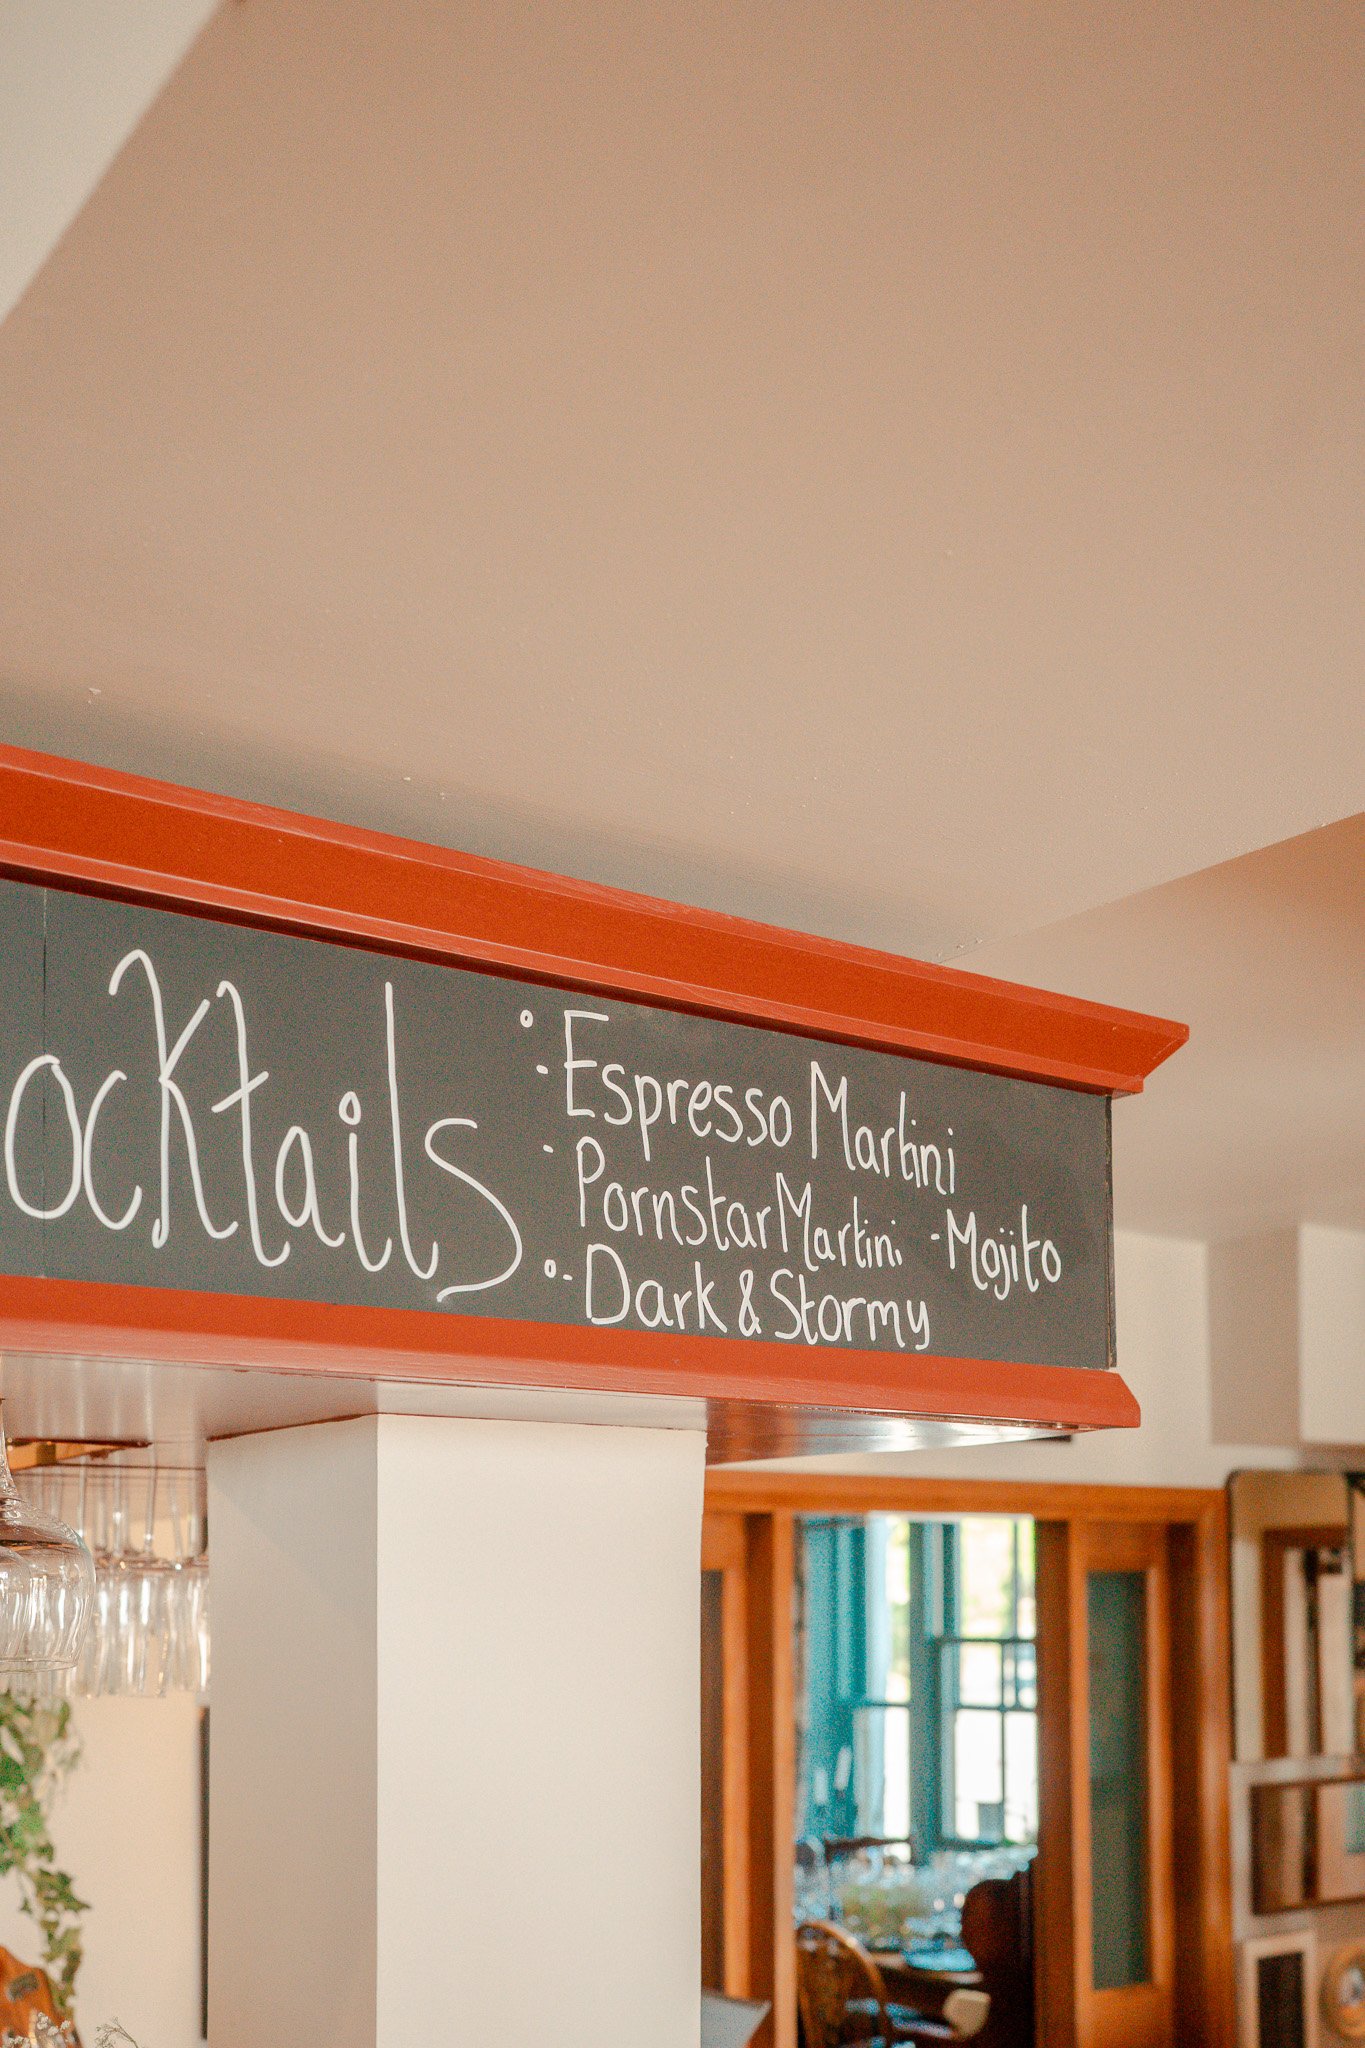 ocktails
- Espresso Martini
- Pornstar Martini - Mojito
- Dark & Stormy